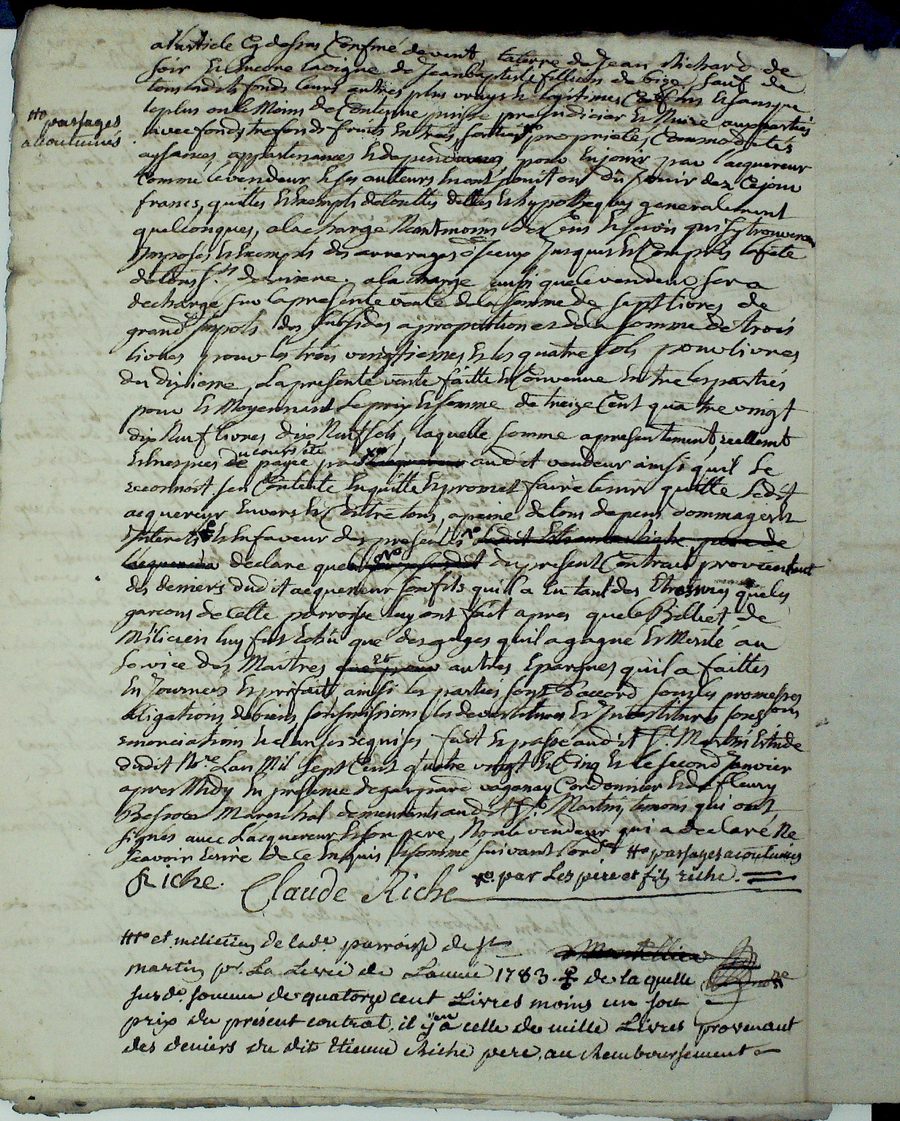 a l'article Cy dessus Confiné devent la terre de Jean Richard de
soir Et Encore la vigne de Jean baptiste fillion de bize, sauf de
tous lesdits fonds leurs autres plus vrays Et legitimes Confins Et sans que
le plus ou le Moins de Contenue puisse prejudicier Et Nuire aux parties
avec fonds tresfonds fruits Entrées sorties propriete, Commodités
aysances appartenances Et dependances pour En jouir par l'acquereur
Comme le vendeur Et ses autheurs En ont jouit ont dû jouir dez Ce jour
francs, quittes Et Exempts de touttes dettes Et hypotheques generalement
quelconques, a la charge Neantmoins des Cens Et servis qui s'y trouveront
Imposés Et Exempts des arrerages d'Iceux Jusques Et Compris la fete
de la charge aussi que le vendeur sera
decharge sur la presente vente de la somme de sept livres de
grand Impots des subsides a proportion et de la somme de trois
livres pour les trois vingtiemes Et les quatre sols pour livres
du dixieme, La presente vente faitte Et Convenue Entre les parties
pour Et Moyennant Le prix Et somme de treize Cent quatre vingt
dix Neuf livres dix Neuf sols, laquelle somme a presentement, reellemt
Et En especes de cours été payée par audit vendeur ainsi qu'il Le
reconnoit s'en Contente En quitte Et promet faire tenir quitte Ledt
acquereur Envers Et Contre tous, a peine de tous depens dommages Et
Interets Et En faveur des presentes
declare que du present Contrat provienent
des deniers dudit acquereur son fils qu'il a Eu tant des Etrennes que les
garçons de Cette parroisse luy ont fait apres que le Billiet de
Milicien luy fut Echu que des gages qu'il a gagné Et Merite au
service des Maitres et autres Epargnes qu'il a faittes
En Journées Et prifait ainsi les parties sont d'accord sous les promesses
obligations de biens soumissions les devestitures Et Investitures
renonciations Et clauses requises fait Et passé audit St. Martin Etude
dudit Nore L'an Mil sept Cent quatre vingt Et Cinq Et le second Janvier
apres Midy En presence de gaspard vagenay Cordonnier Et de fleury
Marechal demeurants aud. St. Martin, temoins qui ont
signes avec L'acquereur Et son pere, Non le vendeur qui a declaré Ne
sçavoir Ecrire de Ce Enquis Et sommé suivant L'ordce passages acoutumés
Riche. Claude Riche par Les pere et fils riche.
passages
acoutumés
et milicien de lade parroisse de St
martin pr. La Levée de L'année 1783. de laquelle
susde somme de quatorze cent Livres moins un sou
prix du présent contrat, il y en a celle de mille Livres provenant
des deniers du dit Etienne Riche pere, au Remboursement